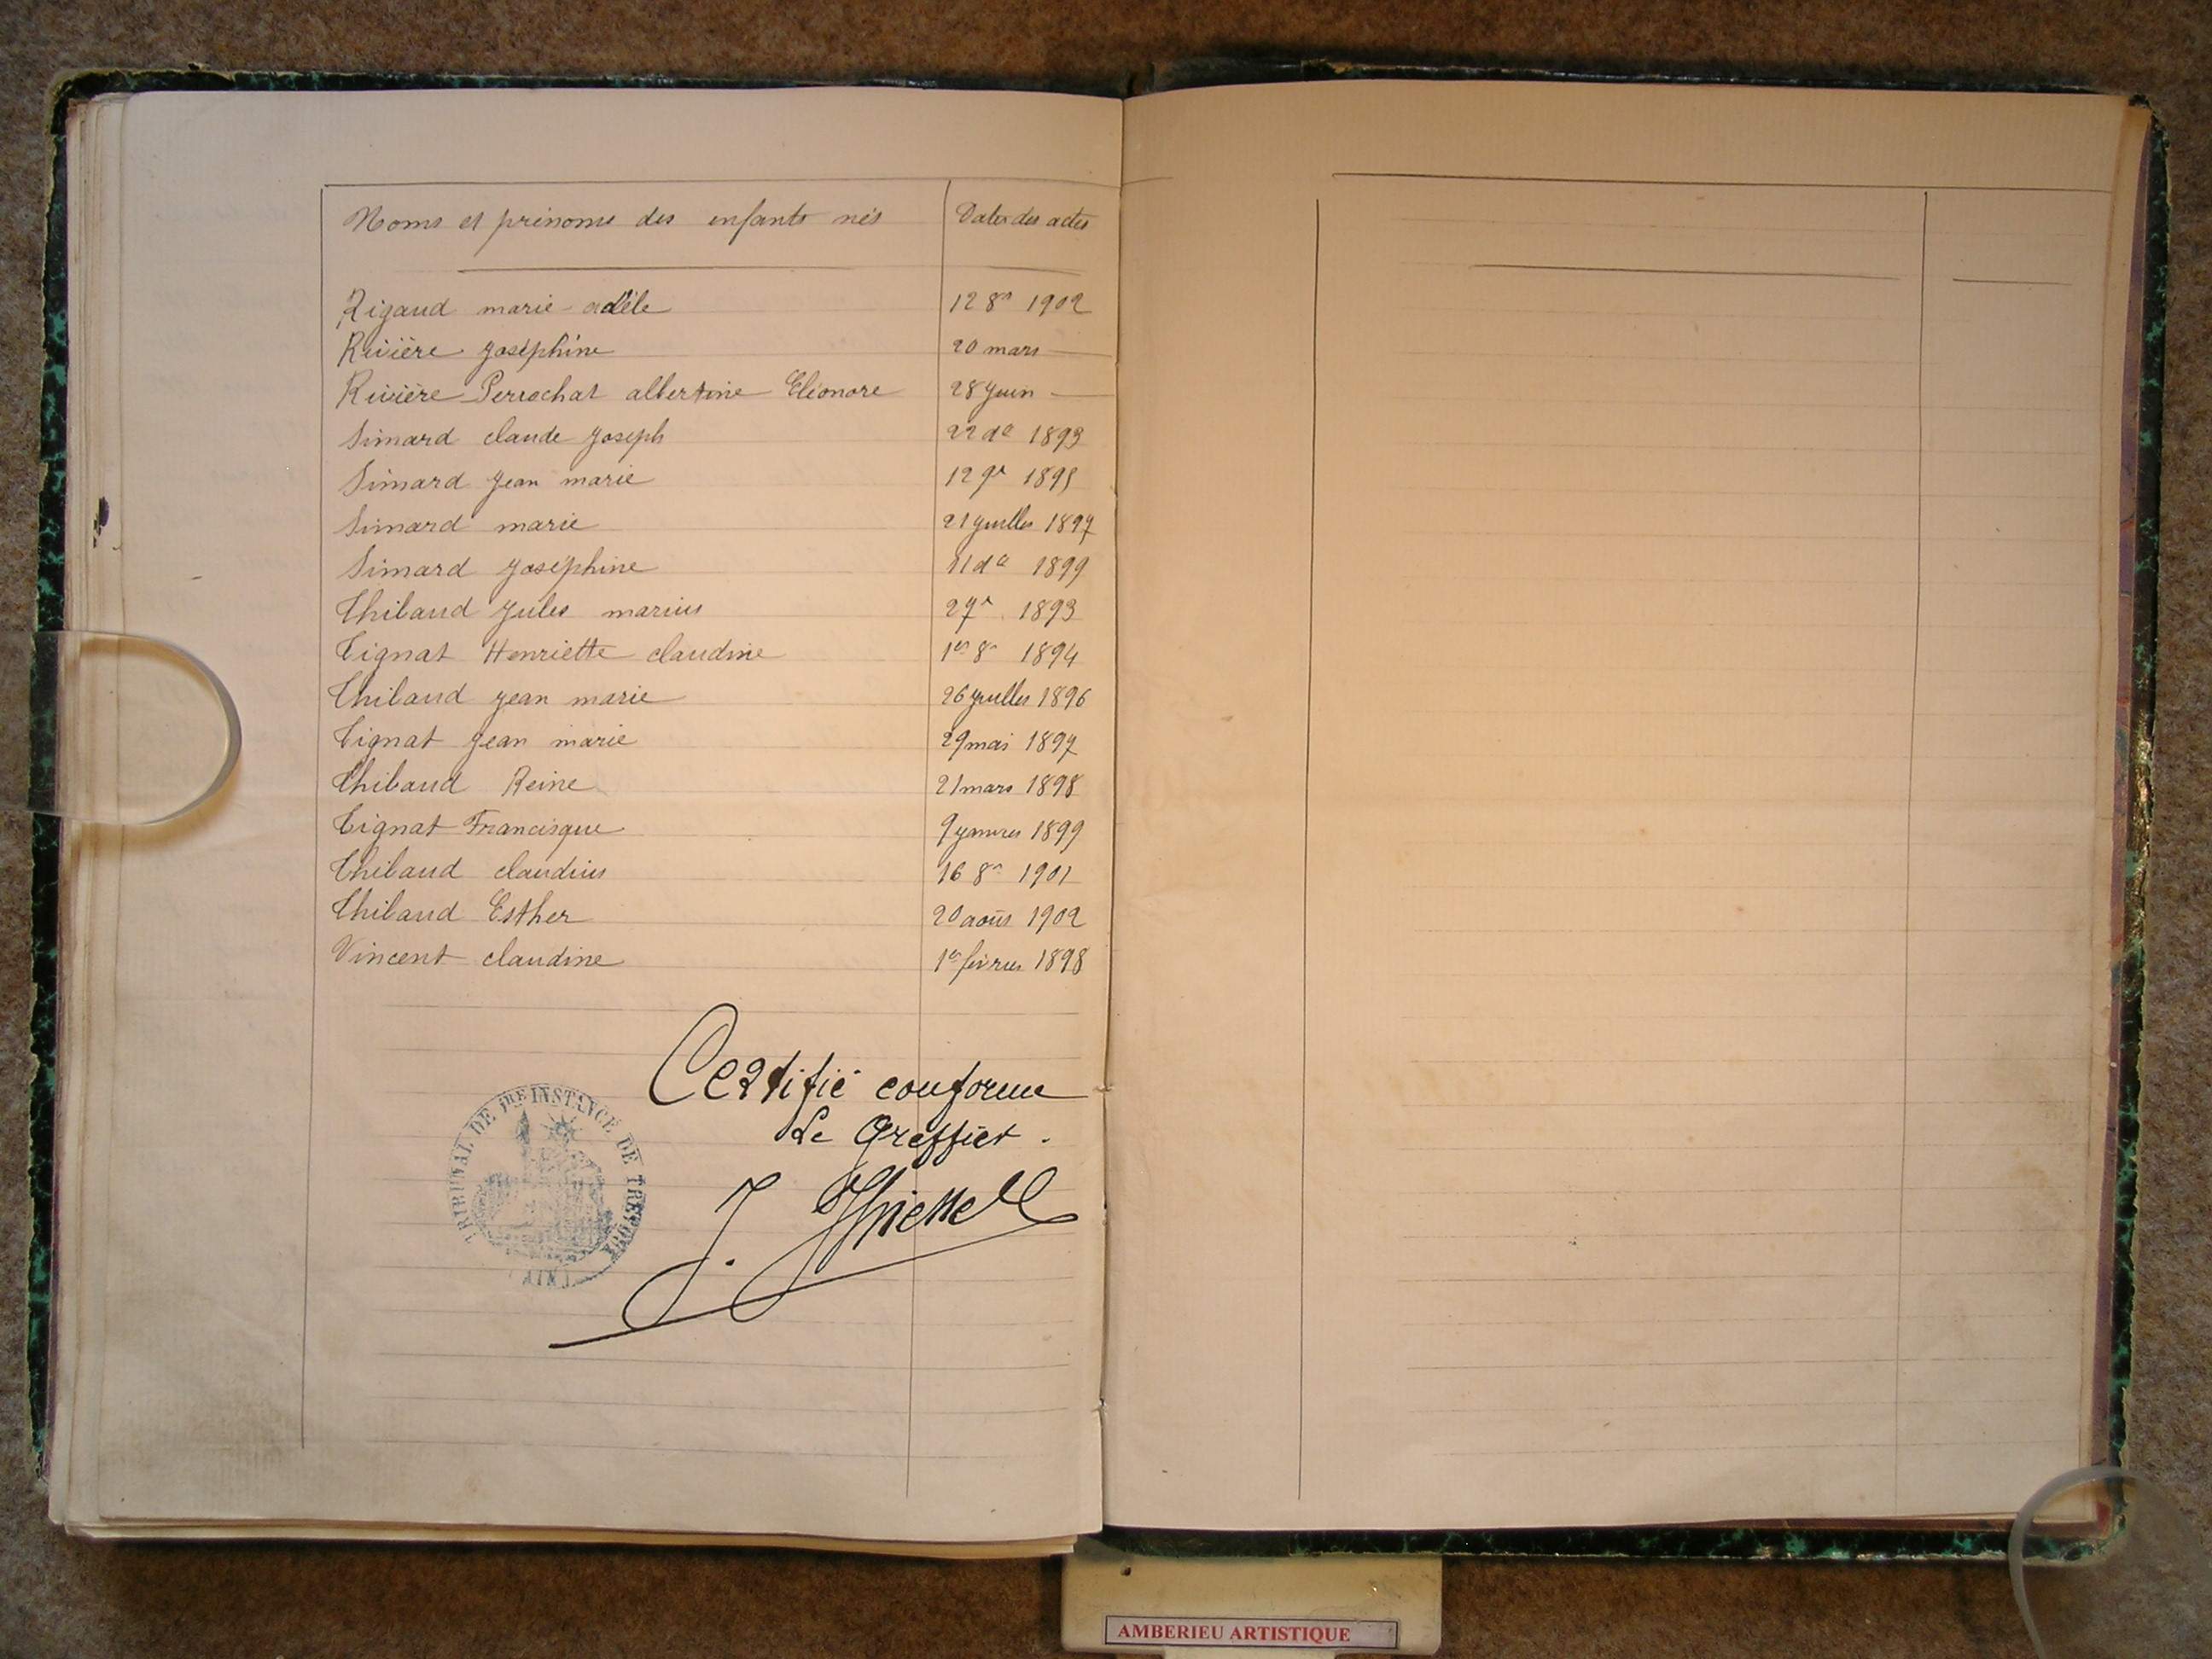 Noms et prénoms des enfants nés Dates des actes
Rigaud marie-adèle 12 8re 1902
Rivière Joséphine 20 mars —
Rivière Perrochat albertine Eléonore 28 Juin —
Simard claude Joseph 22 do 1893
Simard Jean marie 12 9re 1895
Simard marie 21 Juillet 1897
Simard Joséphine 11 do 1899
Thibaud Jules marius 2 7re 1893
Tignat Henriette claudine 1er 8re 1894
Thibaud Jean marie 26 Juillet 1896
Tignat Jean marie 29 mai 1897
Thibaud Reine 21 mars 1898
Tignat Francisque 9 Janvier 1899
Thibaud claudius 16 8re 1901
Thibaud Esther 20 août 1902
Vincent claudine 1er février 1898
Certifié conforme
Le Greffier.
J.
TRIBUNAL DE 1RE INSTANCE DE TREVOUX
(AIN)
AMBERIEU ARTISTIQUE